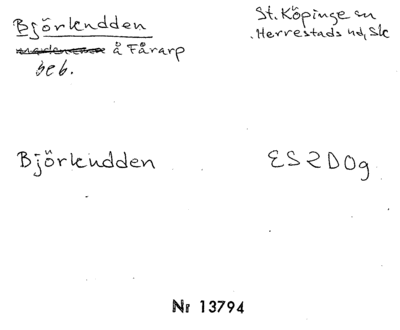 Björkudden
å Fårarp
beb.
St. Köpinge sn
Herrestads hd, Sk
Björkudden
ES2D0g
Nr 13794